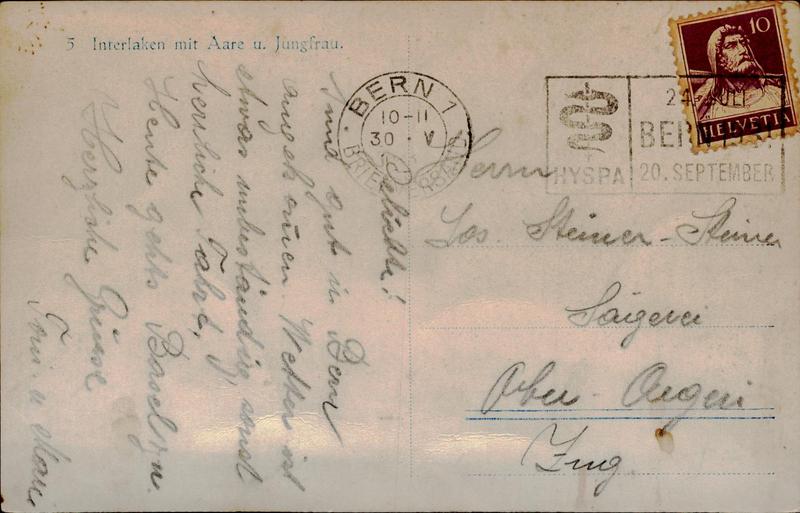 5 Interlaken mit Aare u. Jungfrau.
Geliebte!
Sind gut in Bern
angekommen. Wetter ist
etwas unbeständig, sonst
herrliche Fahrt.
Heute gehts Basel zu.
Herzliche Grüsse
Toni u
BERN 1
10-11
30. V
BRIEFVERSAND
HYSPA
24. JULI
BERN
20. SEPTEMBER
10
HELVETIA
Herrn
Jos. Steiner-Steiner
Sägerei
Ober-Aegeri
Zug.